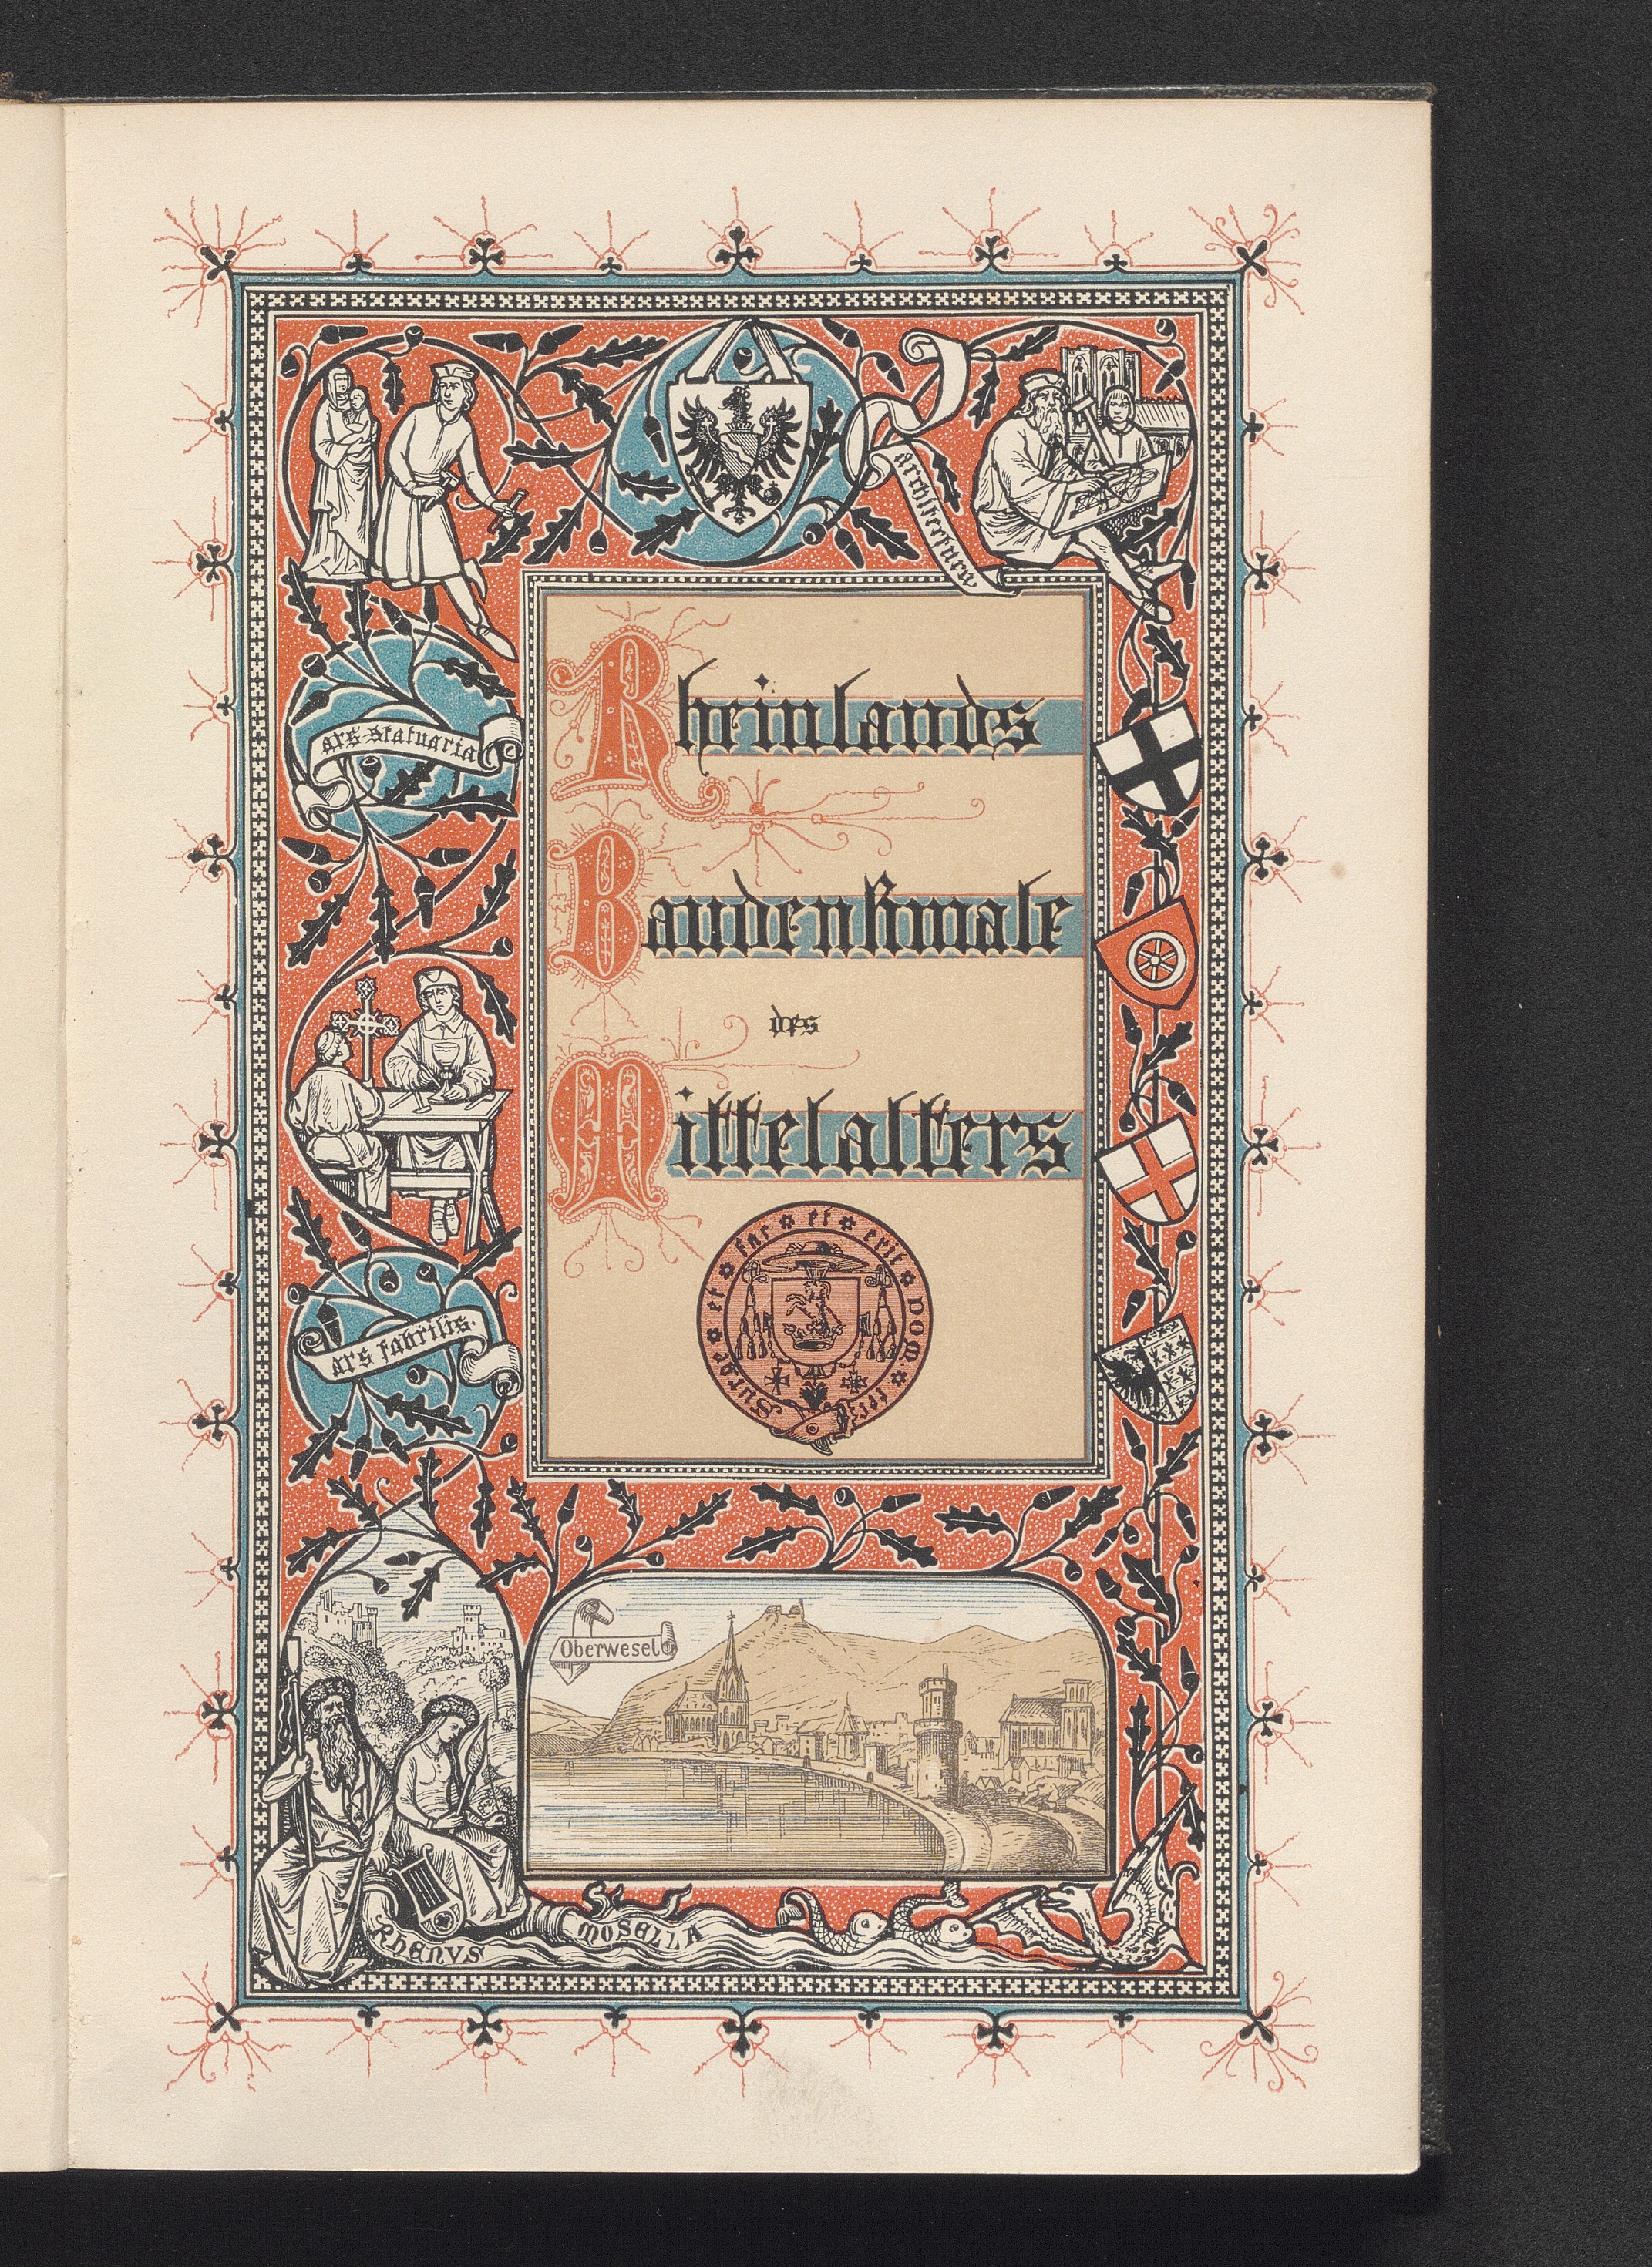 architectura
Rheinlands
ars statuaria
Baudenkmale
des
Mittelalters
Surge et fac et erit DOM.
ars fabrilis.
Oberwesel
RHENVS
MOSELLA